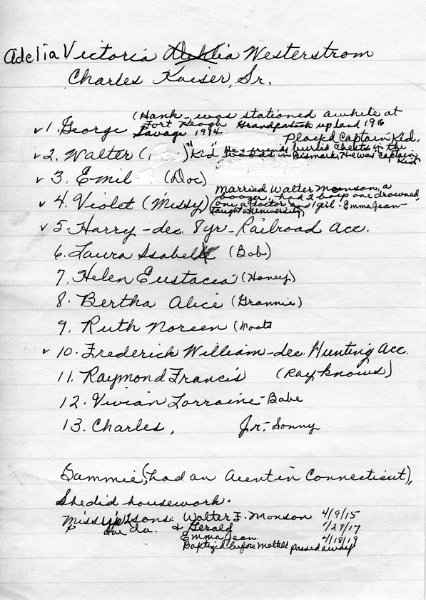 Adelia Victoria Westerstrom
Charles Kaiser, Sr.
(Hank - was stationed awhile at
Fort Keogh Grandpa took up land 196
✓ 1. George Savage 1904 Played Captain Kid,
✓ 2. Walter ( "Kid" buried chests in the
in Bismarck, He was Captain Kid
✓ 3. Emil (Doc)
Married Walter Monson, a
✓ 4. Violet (Missy) had 2 boys one drowned,
one a doctor 1 girl - Emma Jean -
taught University
✓ 5. Harry - dec. 8 yr - Railroad Acc.
6. Laura Isabell (Bob)
7. Helen Eustacia (Honey)
8. Bertha Alice (Grannie)
9. Ruth Noreen (Moots
✓ 10. Frederick William - dec. Hunting Acc.
11. Raymond Francis (Ray knows)
12. Vivian Lorraine - Babe
13. Charles, Jr. - Sonny
Gammie, (had an Aunt in Connecticut),
She did housework.
Missy's sons: Walter F. Monson 4/9/15
& Gerald 2/27/17
Emma Jean 4/18/19
Baptized before mother passed away